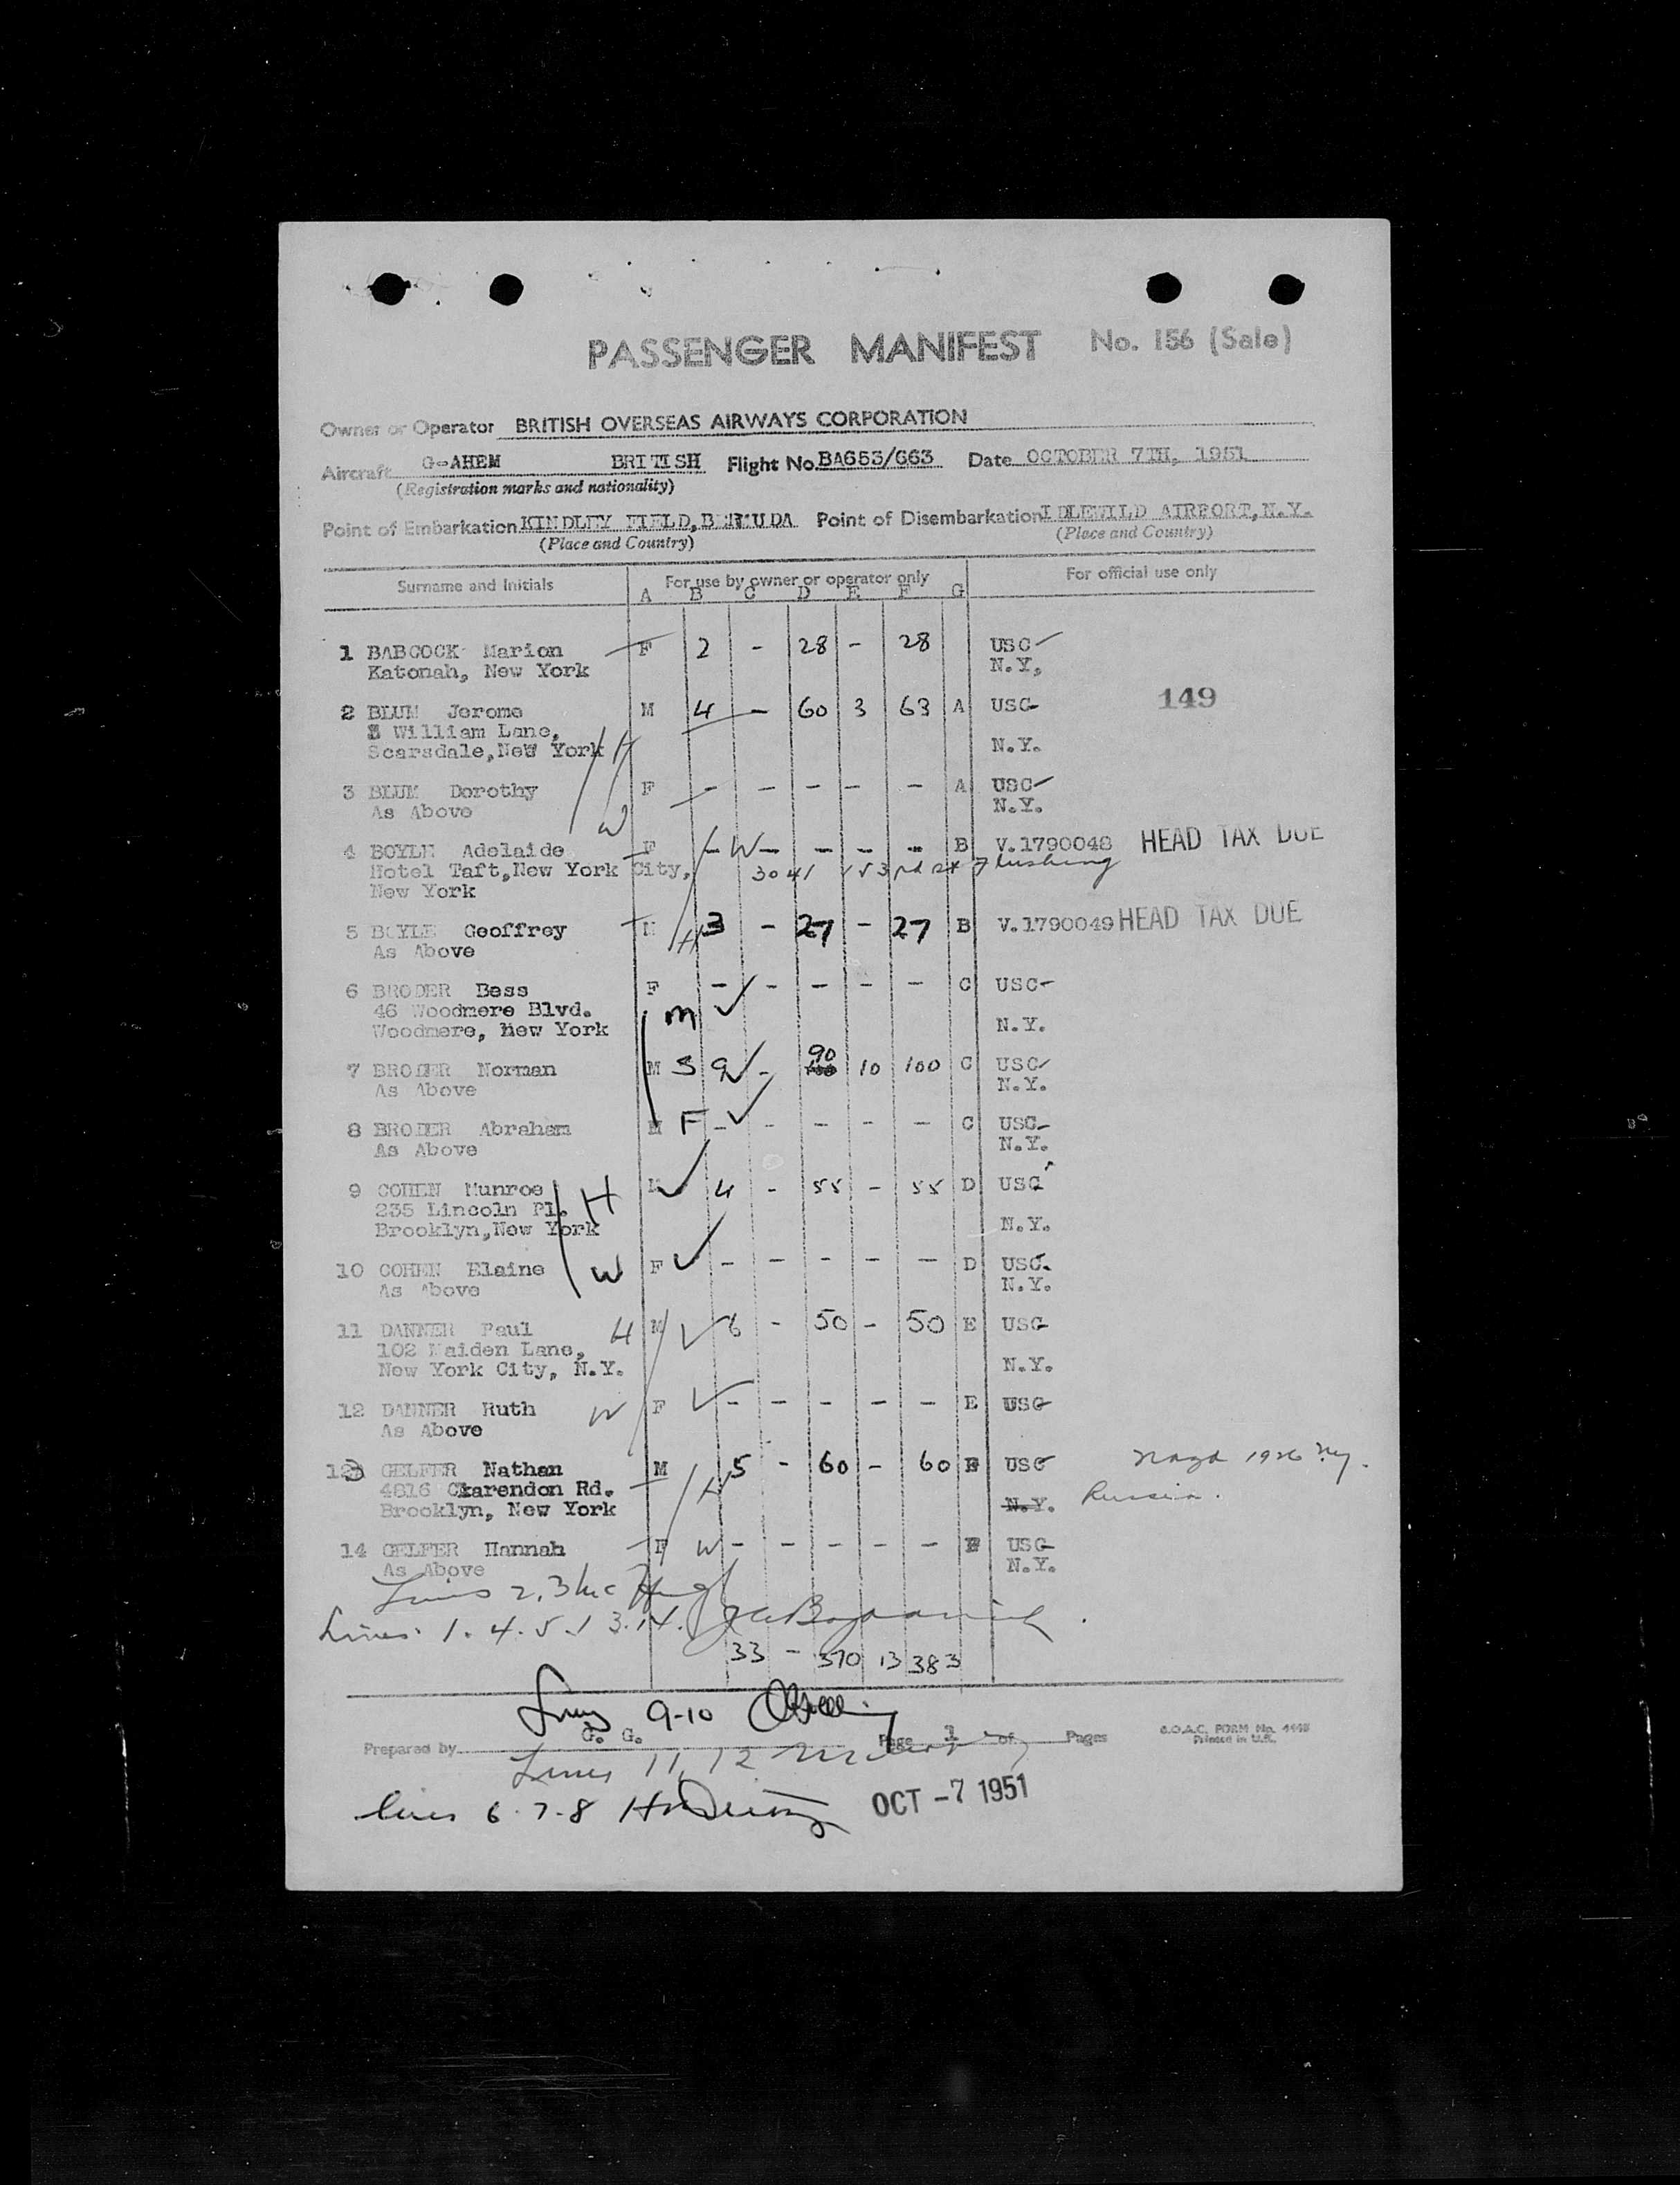 PASSENGER MANIFEST No. 156 (Sale)
Owner or Operator BRITISH OVERSEAS AIRWAYS CORPORATION
Aircraft G-AHEM BRITISH Flight No. BA653/663 Date OCTOBER 7TH, 1951
(Registration marks and nationality)
Point of Embarkation KINDLEY FIELD, BERMUDA Point of Disembarkation IDLEWILD AIRPORT, N.Y.
(Place and Country) (Place and Country)
Surname and Initials For use by owner or operator only For official use only
A B C D E F G
1 BABCOCK Marion F 2 - 28 - 28 USC
Katonah, New York N.Y,
149
2 BLUM Jerome M 4 - 60 3 63 A USC
William Lane,
Scarsdale, New York H N.Y.
3 BLUM Dorothy F - - - - - A USC
As Above W N.Y.
4 BOYLE Adelaide F - W - - - - B V.1790048 HEAD TAX DUE
Hotel Taft, New York City, 3041 153rd st Flushing
New York
5 BOYLE Geoffrey M H 3 - 27 - 27 B V.1790049 HEAD TAX DUE
As Above
6 BRODER Bess F - - - - - C USC
46 Woodmere Blvd. m
Woodmere, New York N.Y.
7 BRODER Norman M S 9 - 90 10 100 C USC
As Above N.Y.
8 BRODER Abraham M F - - - - - C USC
As Above N.Y.
9 COHEN Munroe H M 4 - 55 - 55 D USC
235 Lincoln Pl.
Brooklyn, New York N.Y.
10 COHEN Elaine W F - - - - - D USC
As Above N.Y.
11 DANNER Paul H M 6 - 50 - 50 E USC
102 Maiden Lane,
New York City, N.Y. N.Y.
12 DANNER Ruth W F - - - - - E USC
As Above
13 GELFER Nathan M 5 - 60 - 60 USC Nazd 1926 N.Y.
4816 Clarendon Rd. H Russia.
Brooklyn, New York N.Y.
14 GELFER Hannah F W - - - - - USC
As Above N.Y.
Lines 2, 3
Lines 1. 4. 5. 13. 14.
33 - 370 13 383
Lines 9-10
Prepared by G. G. Page 1 of Pages B.O.A.C. FORM No. 4448
Printed in U.K.
Lines 11, 12
lines 6-7-8
OCT -7 1951